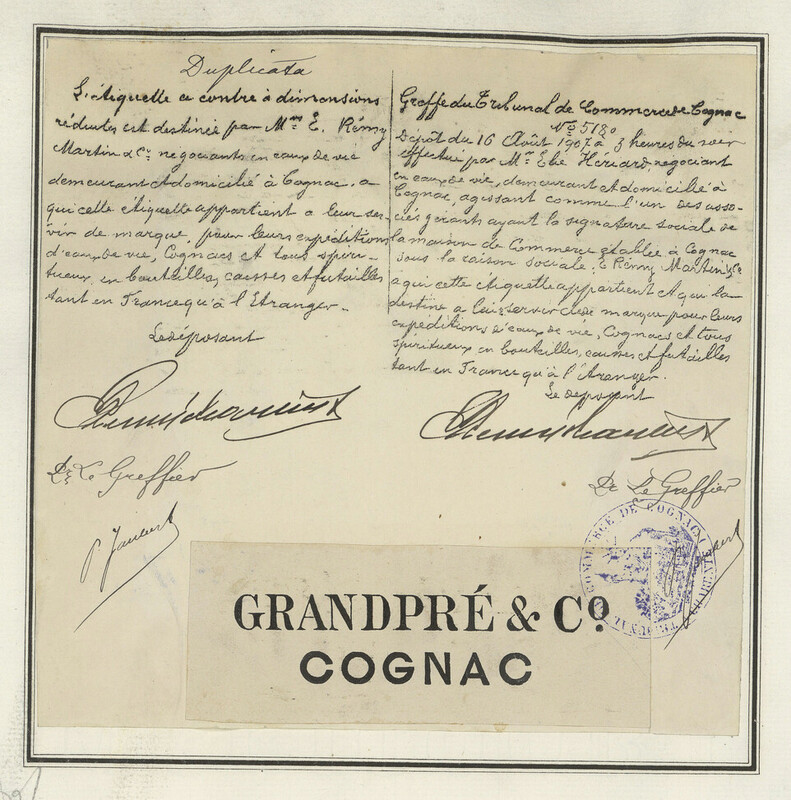 Duplicata
L'étiquette ci contre à dimensions
réduites est destinée par Mrs E. Rémy
Martin & Cie négociants en eaux de vie
demeurant et domicilié à Cognac, a
qui cette étiquette appartient a leur ser-
vir de marque, pour leurs expéditions
d'eaux de vie, Cognacs et tous spiri-
tueux, en bouteilles, caisses et futailles
tant en France qu'à l'Etranger.-
Le déposant
Le Greffier
Greffe du Tribunal de Commerce de Cognac
No 5130
Dépot du 16 Août 1907 à 3 heures du soir
effectué par Mr Elie Hériard, négociant
en eaux de vie, demeurant et domicilié à
Cognac, agissant comme l'un des asso-
ciés gérants ayant la signature sociale de
la maison de Commerce établie à Cognac
sous la raison sociale: E. Rémy Martin & Cie
a qui cette étiquette appartient et qui la
destine a leur servir de marque pour leurs
expéditions d'eaux de vie, Cognacs et tous
spiritueux en bouteilles, caisses et futailles
tant en France qu'à l'étranger.
Le déposant
Le Greffier
TRIBUNAL DE COMMERCE DE COGNAC
GRANDPRÉ & Co.
COGNAC